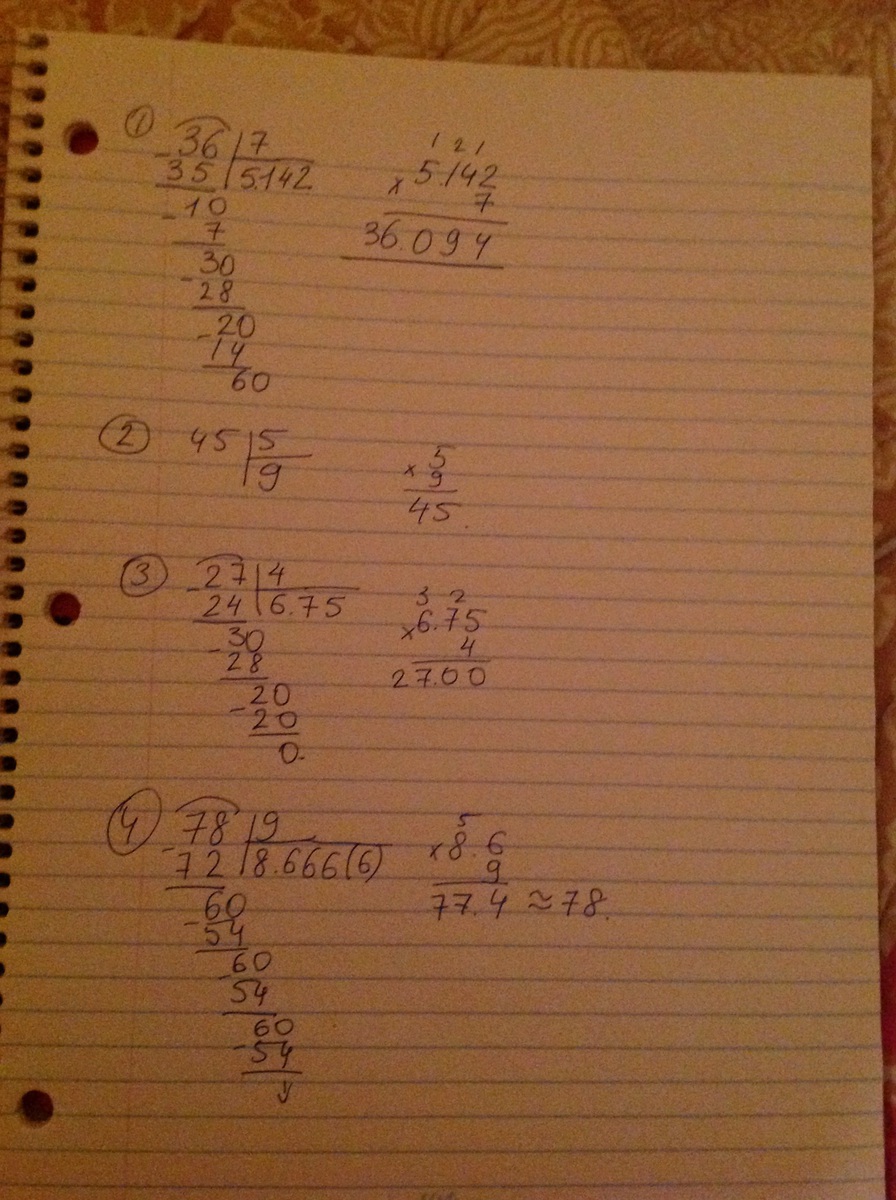 ① 36 | 7
- 35 | 5.142
- 10
7
- 30
28
- 20
14
60
1 2 1
× 5.142
7
36.094
② 45 | 5
9
× 5
9
45.
③ - 27 | 4
24 | 6.75
- 30
28
- 20
20
0.
3 2
× 6.75
4
27.00
④ - 78 | 9
72 | 8.666(6)
- 60
54
- 60
54
60
- 54
5
× 8.6
9
77.4 ≈ 78.